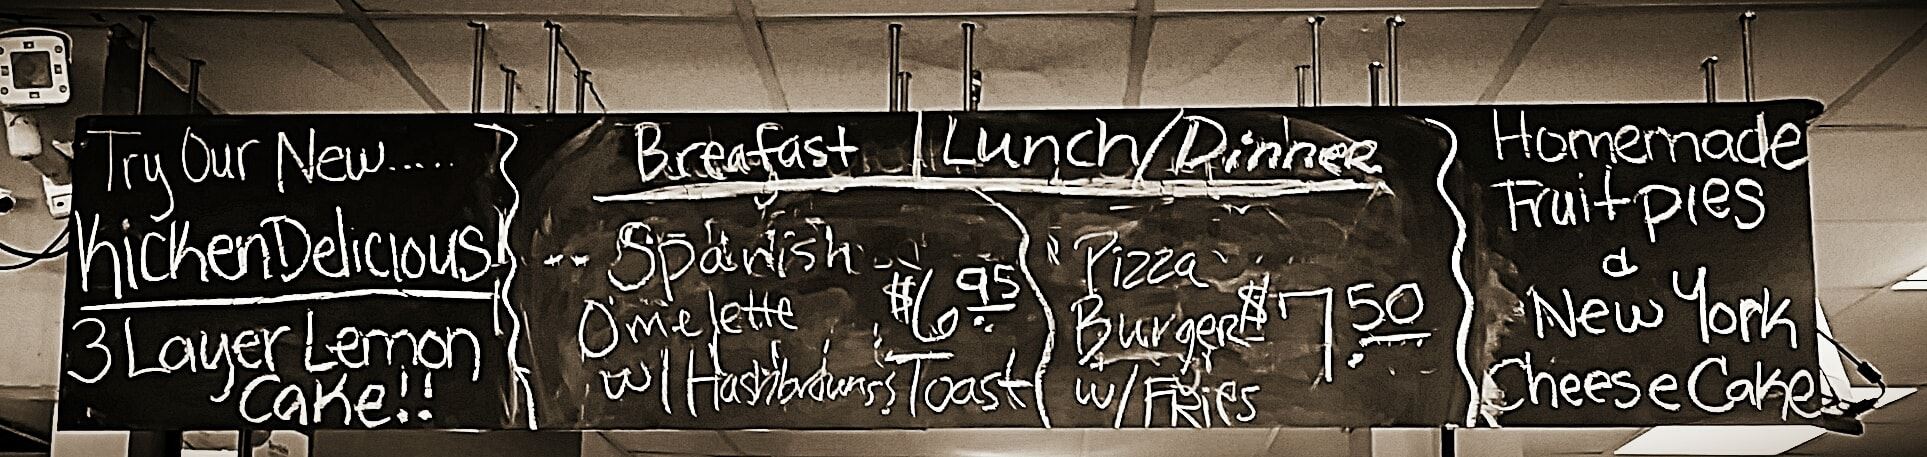 Try Our New.....
KickenDelicious!
3 Layer Lemon
Cake!!
Breafast | Lunch/Dinner
Spanish
Omelette
w/ Hashbrowns; Toast
$6.95
Pizza
Burger
w/ Fries
$7.50
Homemade
Fruit pies
&
New York
Cheese Cake